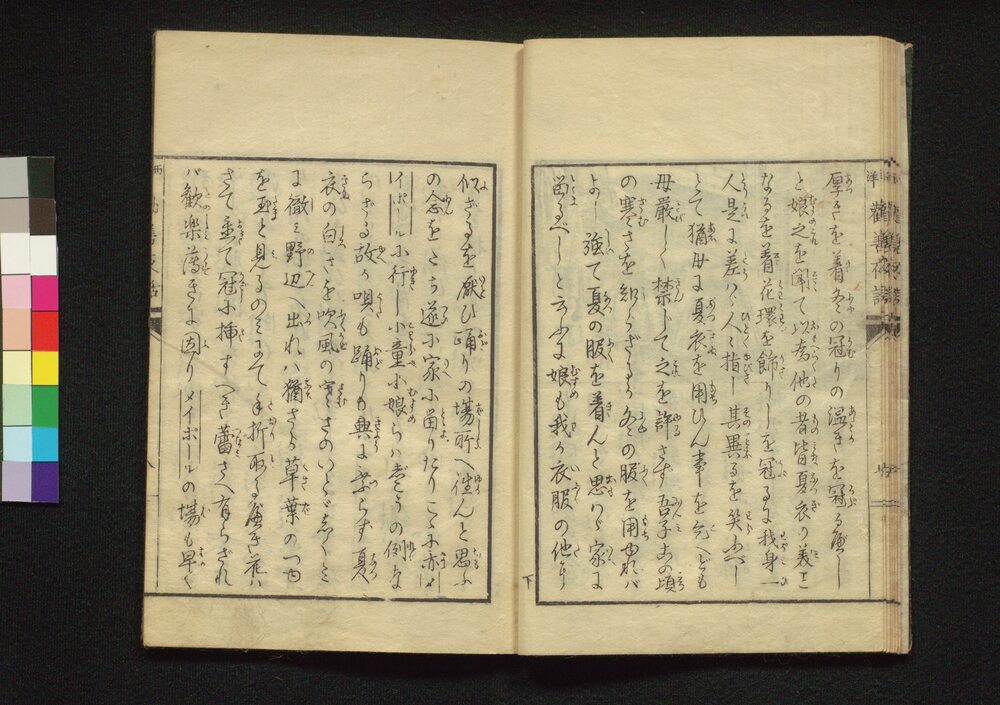 厚きを着冬の冠りの温きを冠る应し
と娘之を聞て以為他の者皆夏衣の美こ
なるを着花環を飾りしを冠るに我身一
人是に差はゞ人々指し其異るを笑ふべし
とて猶母に夏衣を用ひん事を乞へども
母厳しく禁じて之を許さず吾子この頃
の寒さを知らざるか冬の服を用ゆれバ
よし強て夏の服を着んと思はゞ家に
留るべしと云ふに娘も我が衣服の他に
似ざるを厭ひ踊りの場所へ往んと思ふ
の念をたち遂に家に留りたりこゝに亦メ
イポールに行し小童小娘らハ
らざる故か唄も踊りも興に乗らず夏
衣の白きを吹風の寒さのいとゞ
に徹ミ野辺へ出れハ猶さら草葉のつゆ
を
さて垂て冠に挿すべき蕾さへ有らざれ
バ歓楽薄きに因りメイポールの場も早く
下